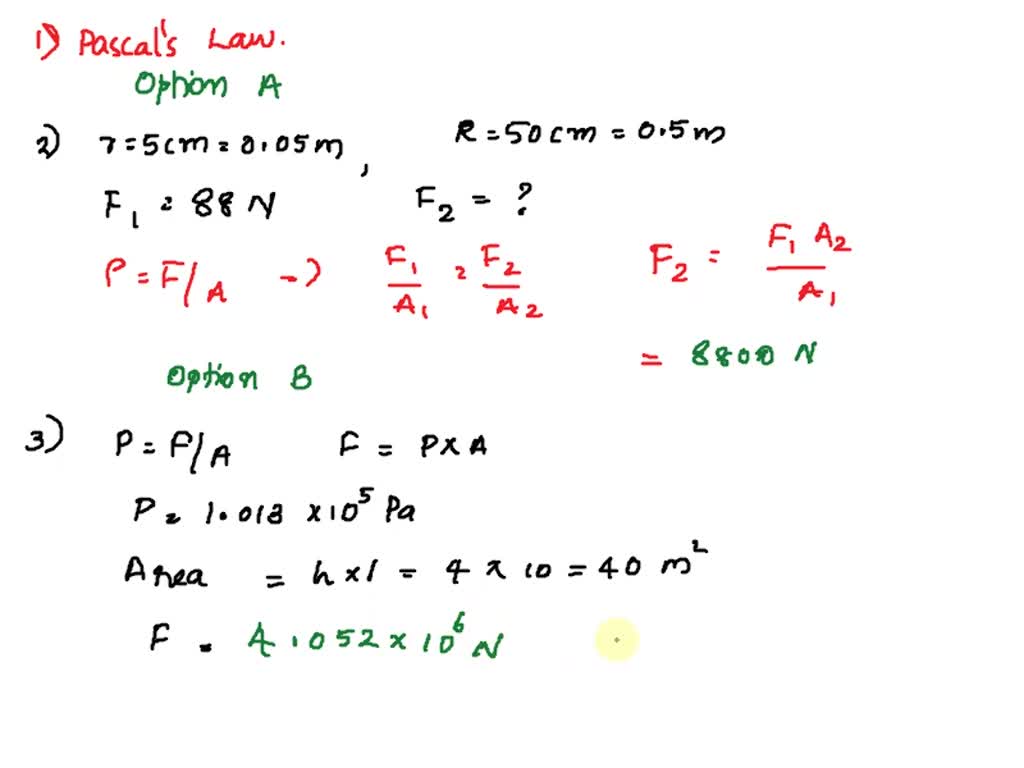 1) Pascal's Law.
Option A
2) r = 5cm = 0.05m, R = 50cm = 0.5m
F₁ = 88 N F₂ = ?
P = F/A → F₁/A₁ = F₂/A₂ F₂ = F₁ A₂/A₁
= 8800 N
Option B
3) P = F/A F = P×A
P = 1.013 ×10⁵ Pa
Area = h×l = 4 × 10 = 40 m²
F = 4.052×10⁶ N